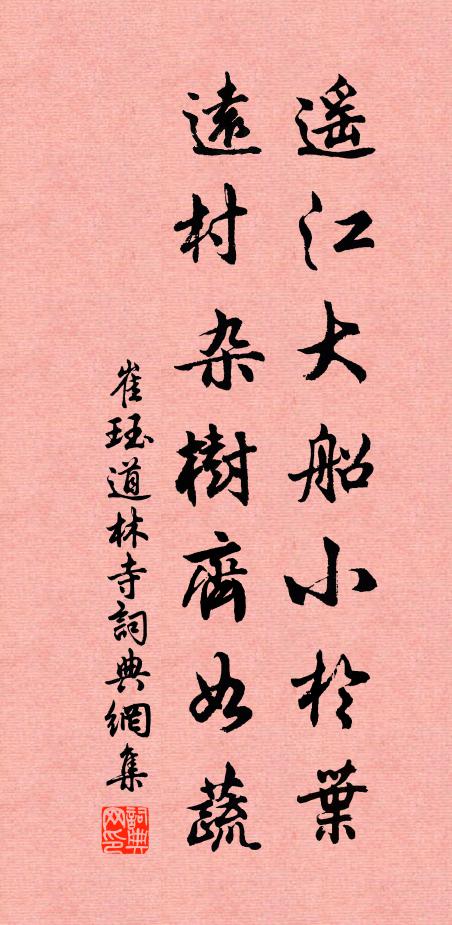 遥江大船小於葉
遠村杂樹齊如蔬
崔珏道林寺詞典網集
詞典网印